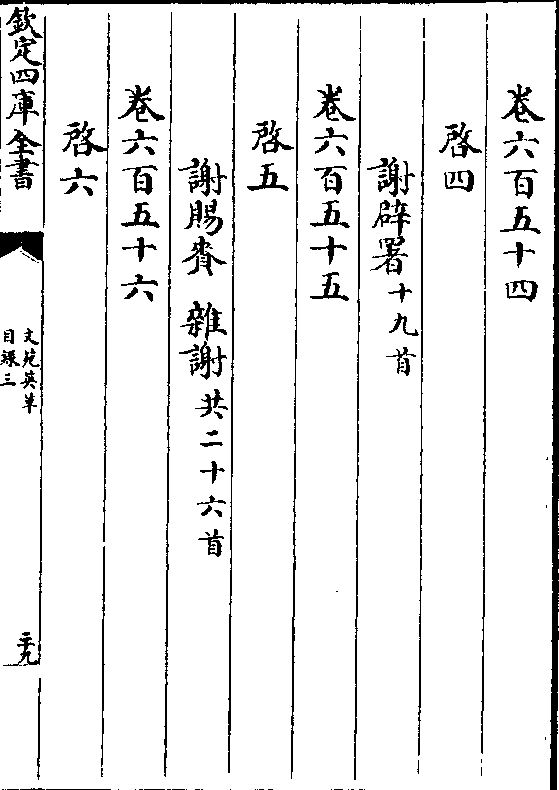 卷六百五十四
啓四
謝辟署十九首
卷六百五十五
啓五
謝賜賚 雜謝共二十六首
卷六百五十六
啓六
欽定四庫全書
文苑英華
目録三
二十九